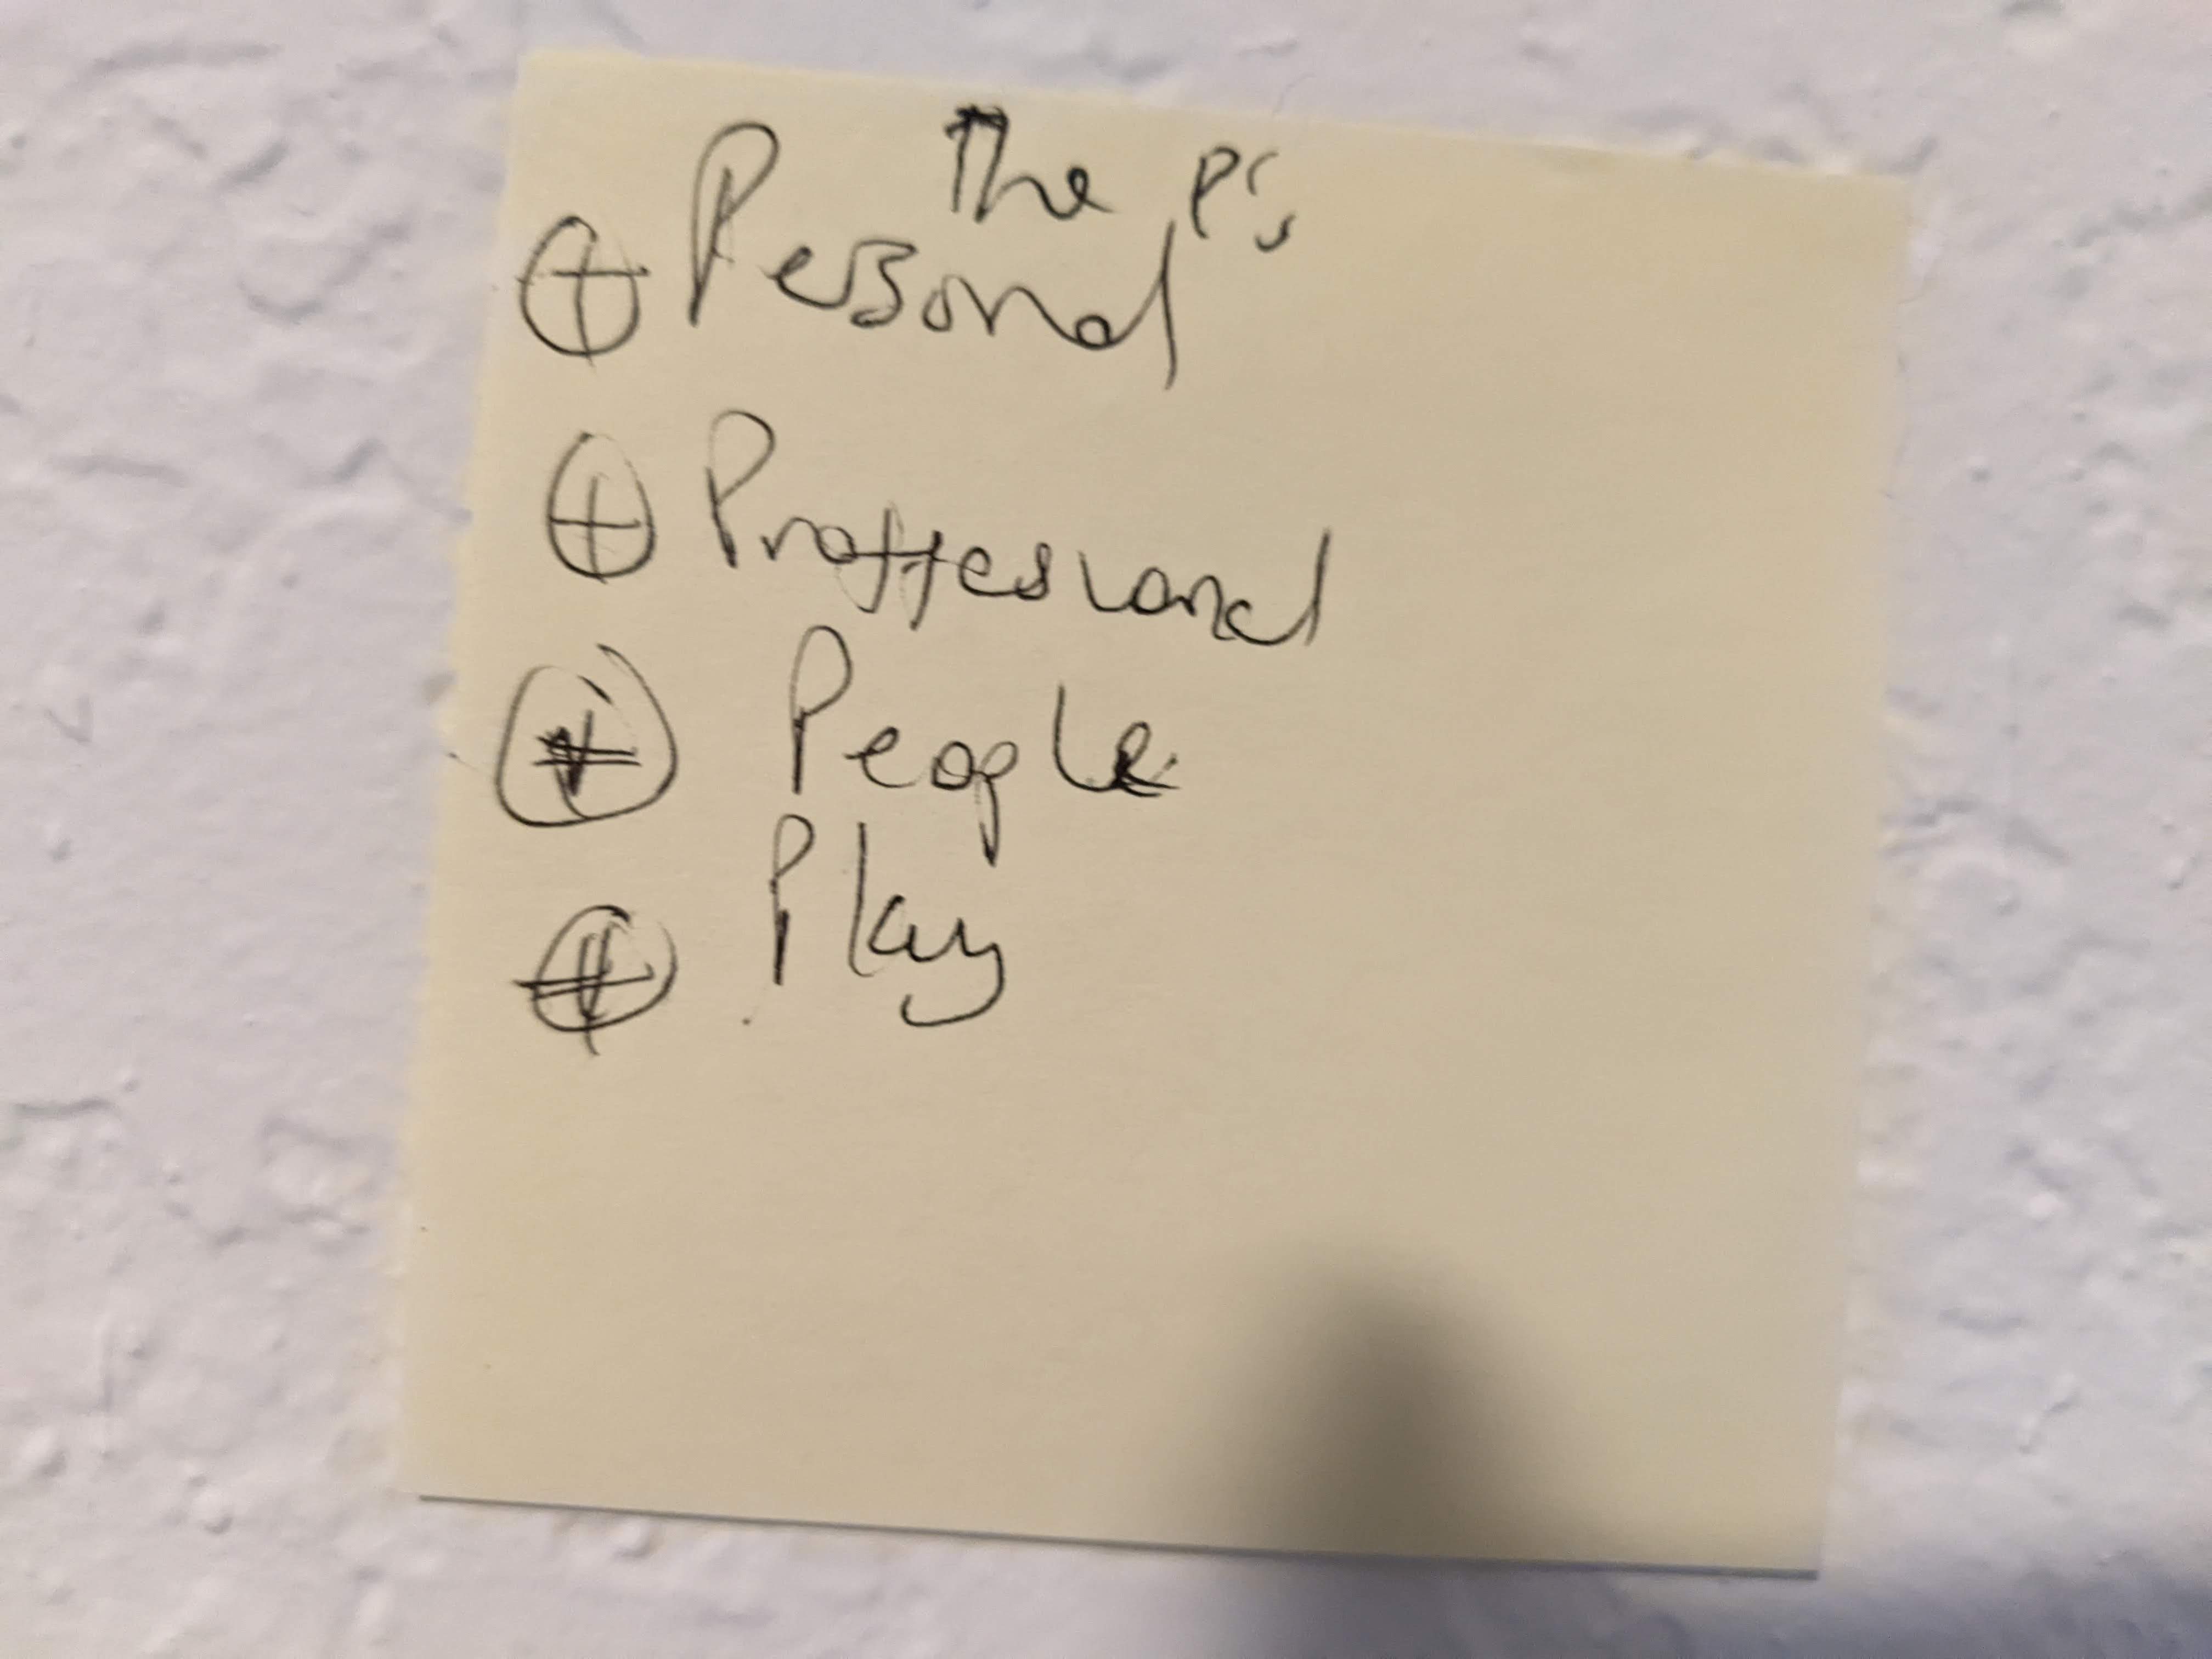 The P's
⊕ Personal
⊕ Proffesional
⊕ People
⊕ Play